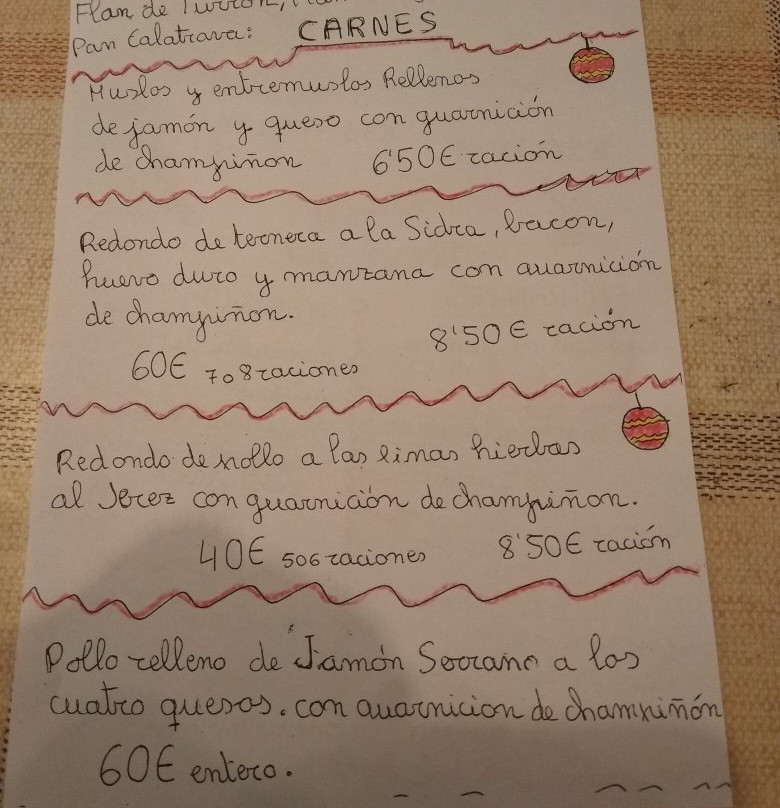 Flan de Turrón,
Pan Calatrava:
CARNES
Muslos y entremuslos Rellenos
de jamón y queso con guarnición
de champiñon 6'50€ ración
Redondo de ternera a la Sidra, bacon,
huevo duro y manzana con guarnición
de champiñon.
8'50€ ración
60€ 7 o 8 raciones
Redondo de pollo a las finas hierbas
al Jerez con guarnición de champiñon.
40€ 5 o 6 raciones 8'50€ ración
Pollo relleno de Jamón Serrano a los
cuatro quesos. con guarnicion de champiñón
60€ entero.